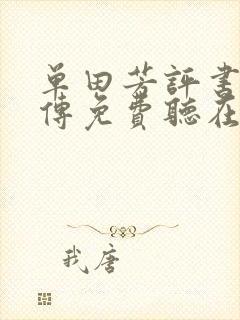 单田芳評書
傳免費聽在
我唐